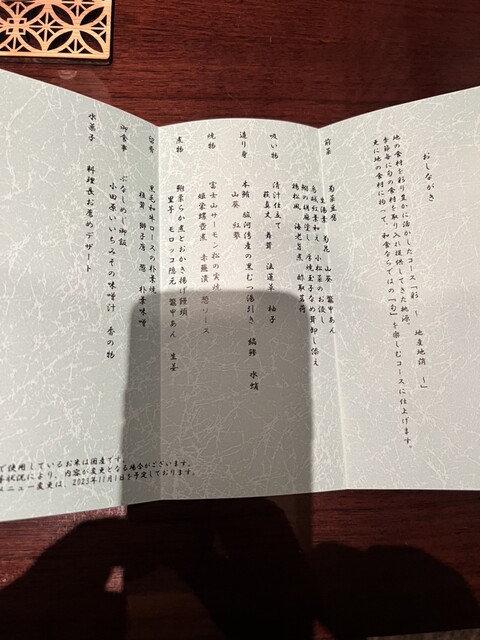 おしながき
地の食材を彩り豊かに活かしたコース「彩 ～ 地産地消 ～」
季節毎に旬の食材を取り入れ提供してきた桃源。
更に地の食材に拘って、和食ならではの「旬」を楽しむコースに仕上げます。
前菜
菊菜豆腐 菊花 山葵 鼈甲あん
生湯葉 小松菜のお浸し
鳥賊紅葉和え
鶏松風 海老旨煮 酢取茗荷
吸い物
清汁仕立て
萩真丈 舞茸 法蓮草 柚子
造り身
本鮪 駿河湾産の黒むつ湯引き 縞鯵 水蛸
山葵 紅蓼
焼物
富士山サーモン松の実焼 葱ソース
姫栄螺壺煮 赤蕪漬
煮物
鮑柔らか煮とおかき揚げ饅頭
里芋 モロッコ隠元 鼈甲あん 生姜
留肴
黒毛和牛ロースの朴葉焼
椎茸 獅子唐 葱 朴葉味噌
御食事
ぶなしめじ御飯
小田原いいちみその味噌汁 香の物
水菓子
料理長お薦めデザート
で使用しているお米は国産です。
状況により、内容が変更となる場合がございます。
メニュー変更は、2023年11月1日を予定しております。